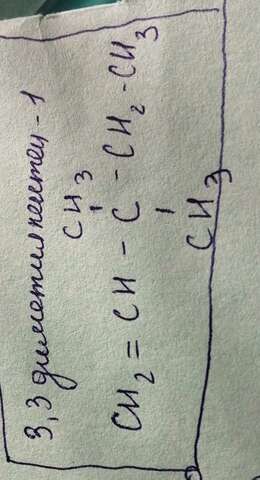 3,3 диметилпентен-1
CH3
CH2 = CH - C - CH2 - CH3
CH3